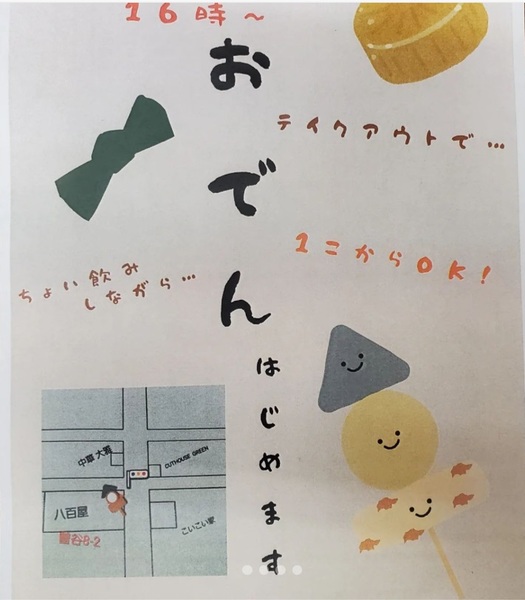 16時~
おでん
はじめます
テイクアウトで…
1こからOK!
ちょい飲み
しながら…
CUTHOUSE GREEN
八百屋
こいこい家